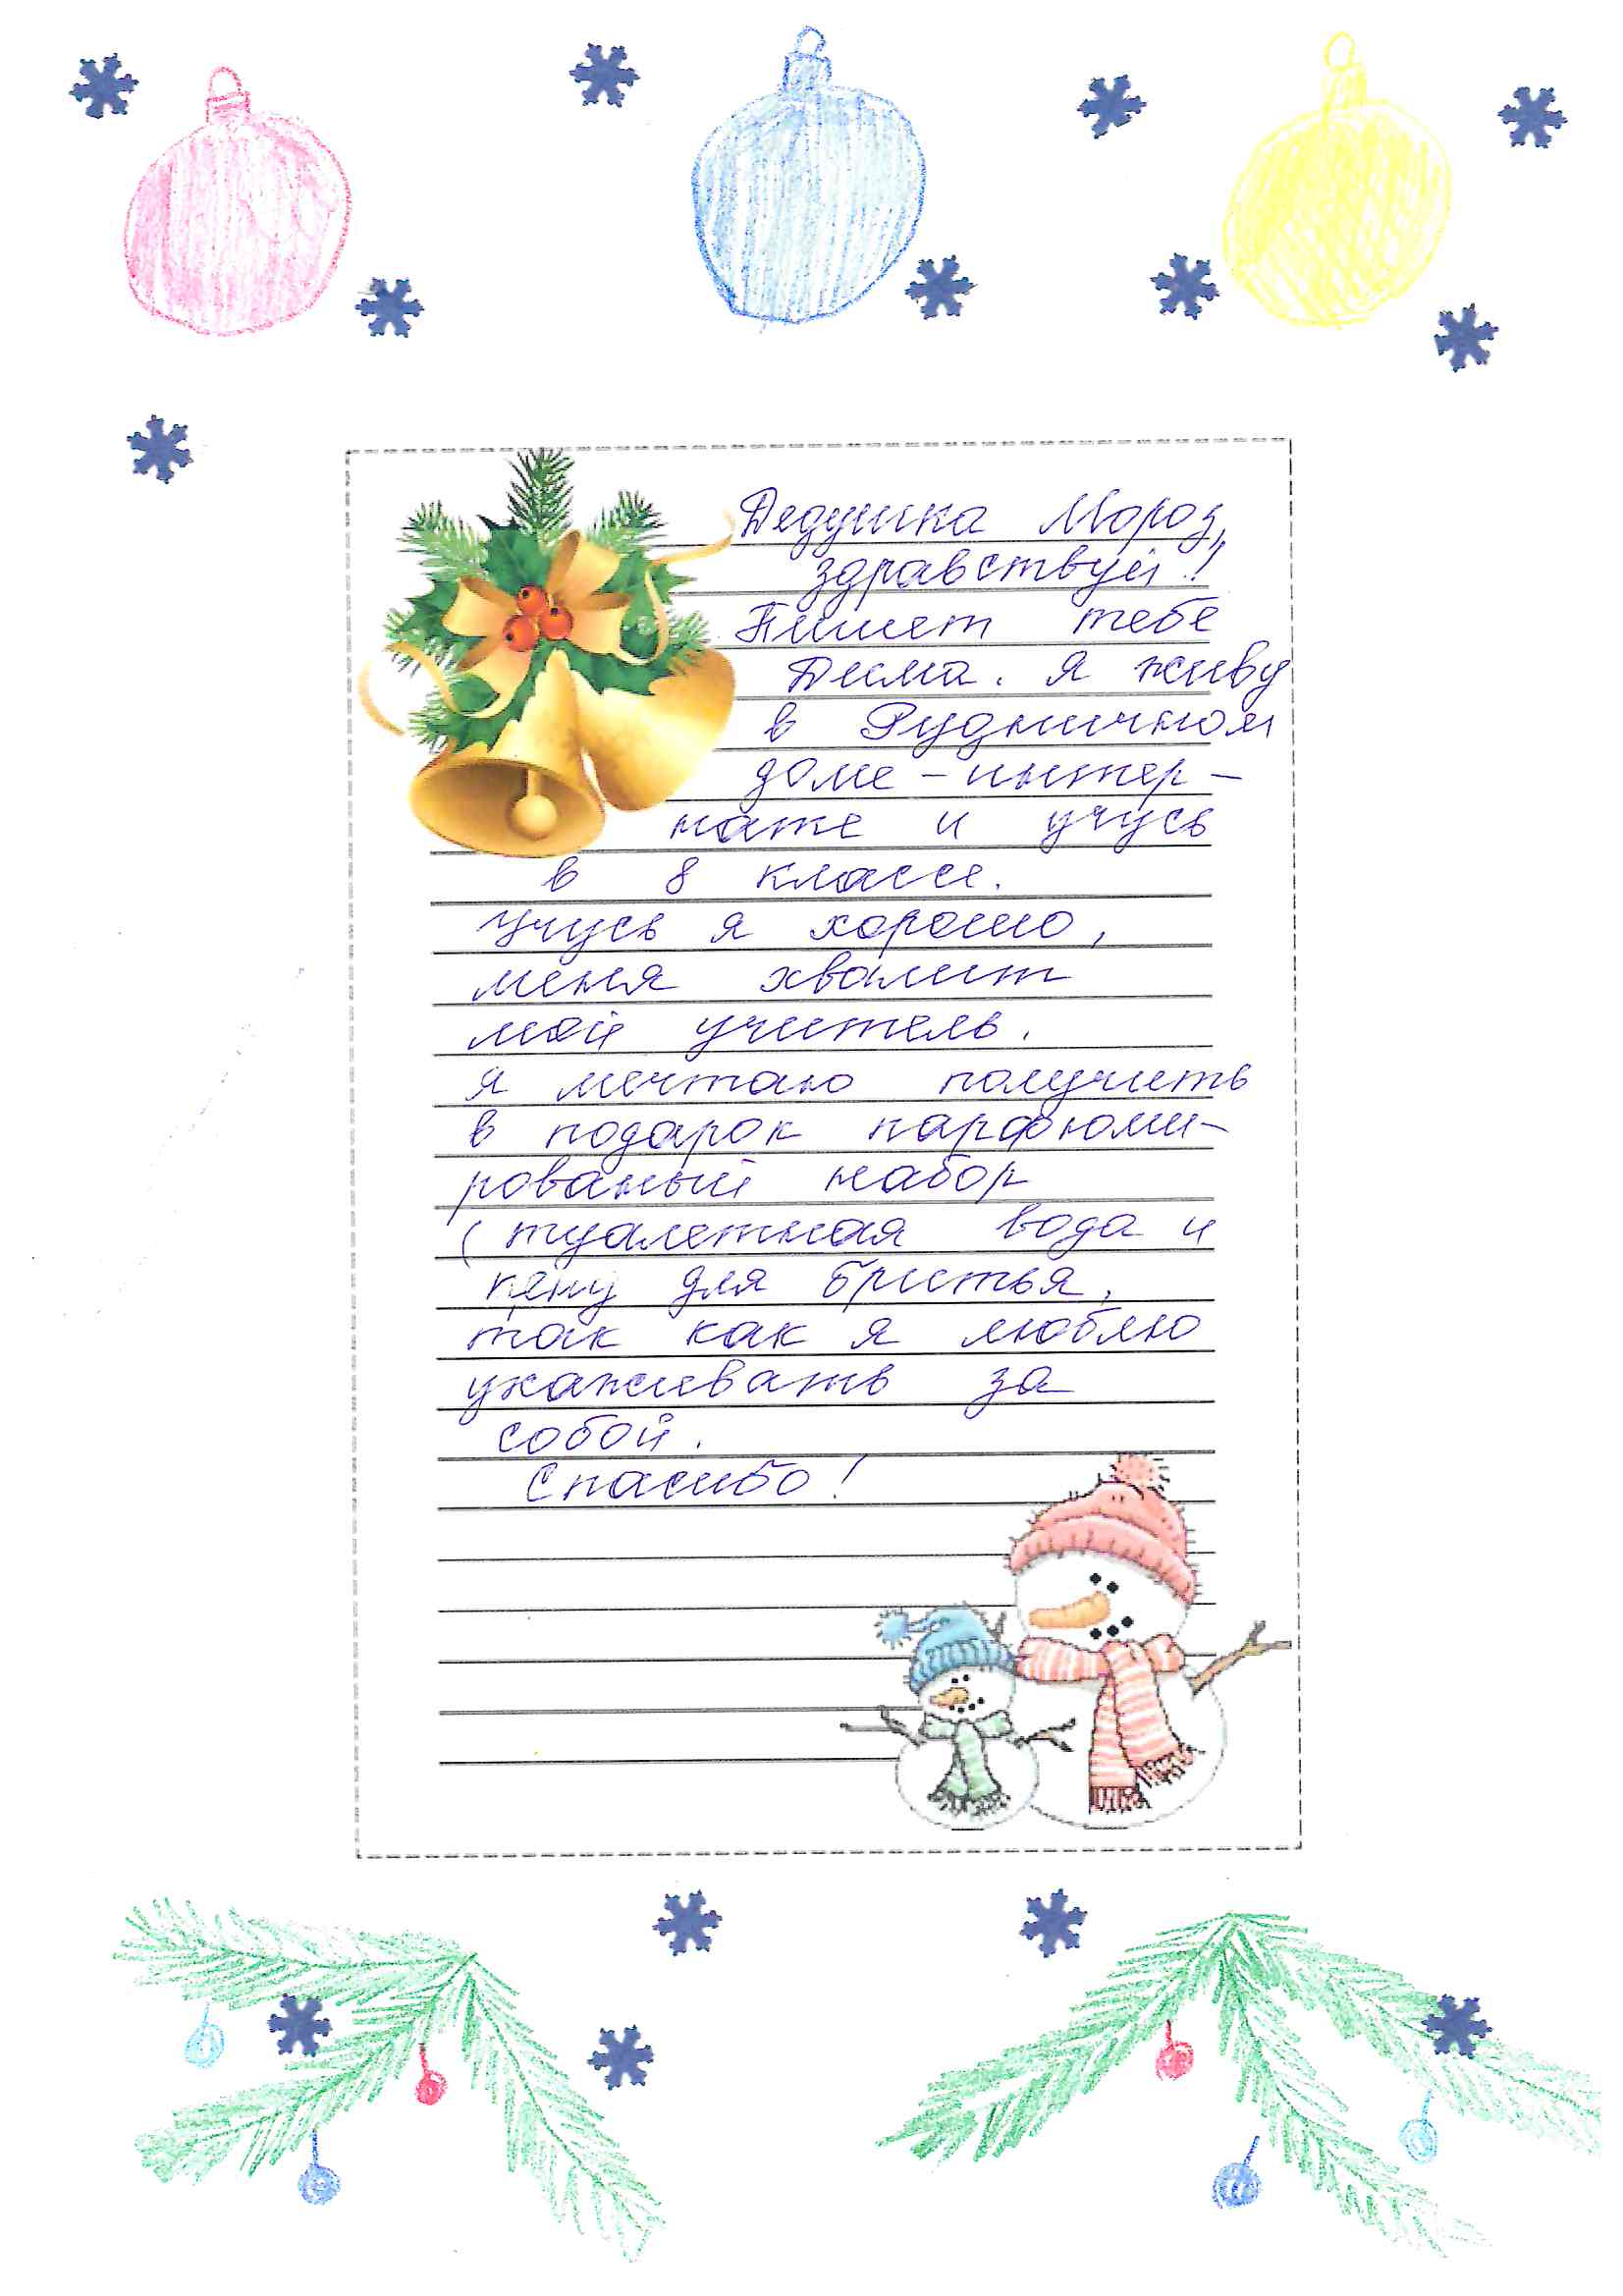 Дедушка Мороз,
здравствуй!
Пишет тебе
Дима. Я живу
в Рудничном
доме-интер-
нате и учусь
в 8 классе.
Учусь я хорошо,
меня хвалит
мой учитель.
Я мечтаю получить
в подарок парфюми-
рованый набор
(туалетная вода и
пену для бритья,
так как я люблю
ухаживать за
собой.
Спасибо!